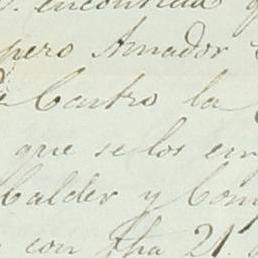 encontrad
pero Amador
Castro la
que se los em
Calder y Com
con fha 21.